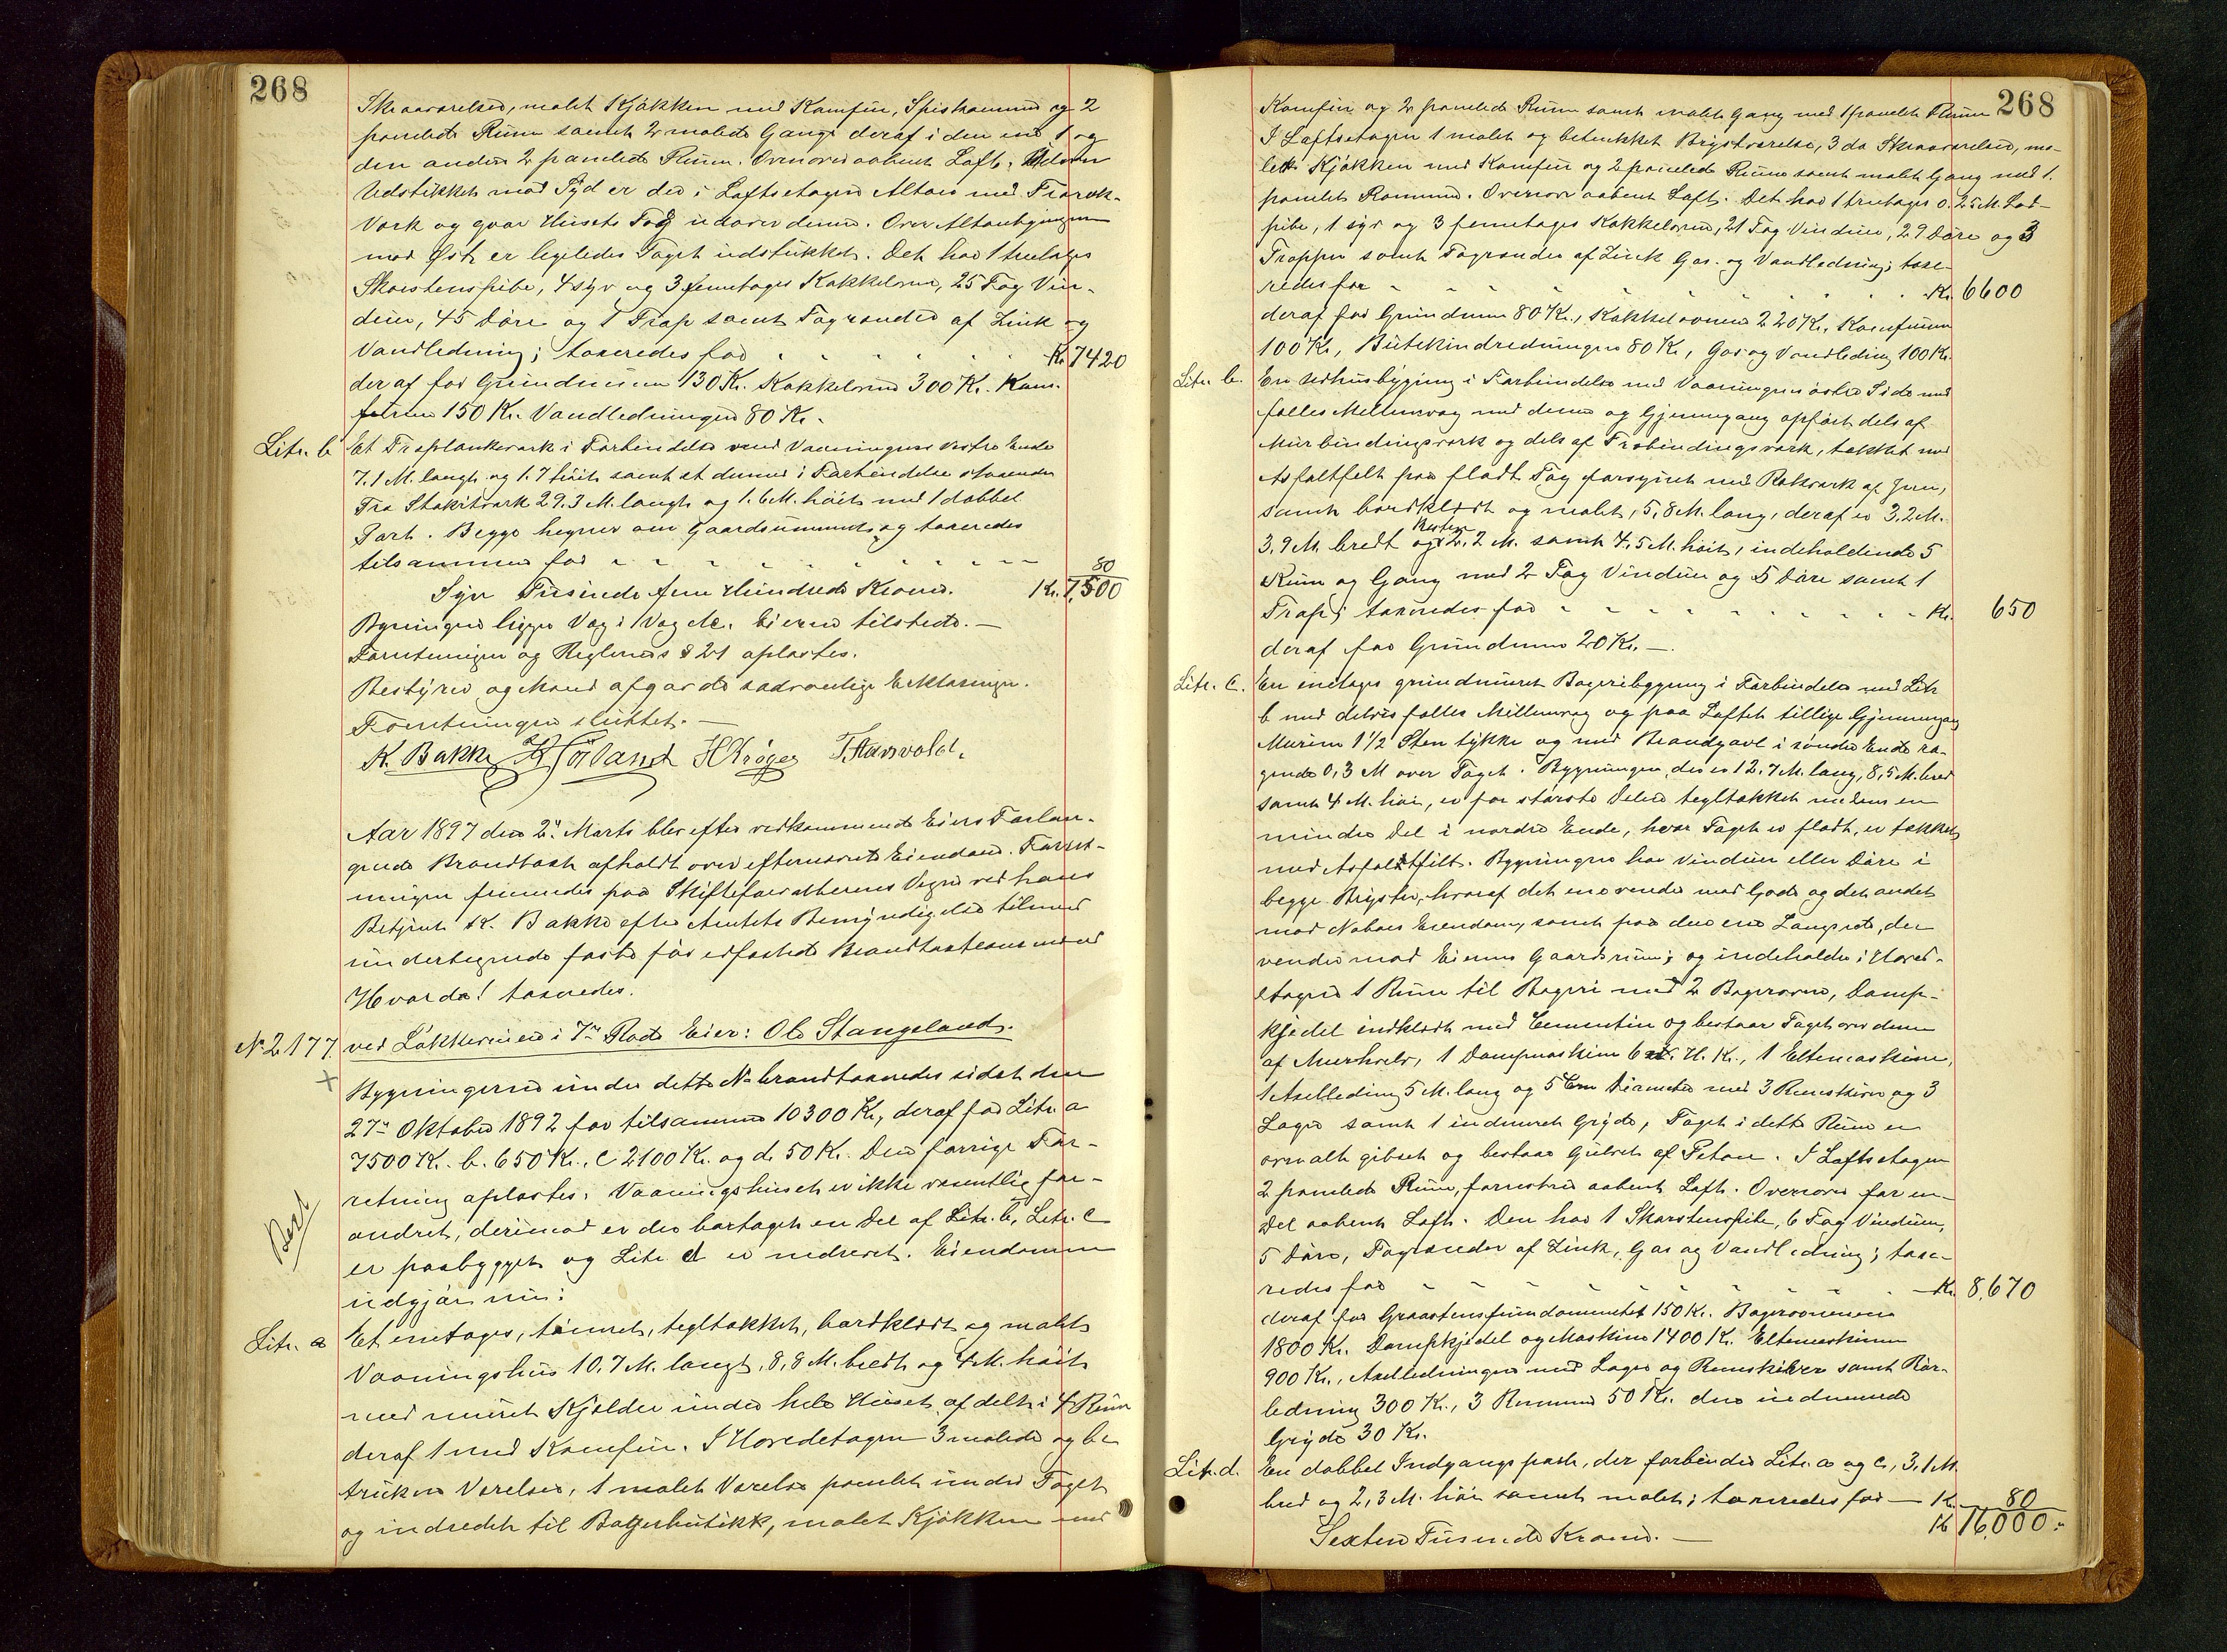 268
Skraaværelser, malet Kjøkken med Komfur, Spiskammer og 2
panelede Rum samt 2 malede Gange deraf i den ene 1 og
den anden 2 panelede Rum. Ovenover aabent Loft.
Udstikket mod Syd er der i Loftsetagen Altan med Træræk-
værk og gaar Husets Tag udover denne. Over Altanbygningen
mod Øst er ligeledes Taget udstukket. Det har 1 treetages
Skorstenspibe, 4 syv og 3 femetages Kakkelovne, 25 Fag Vin-
duer, 45 Døre og 1 Trap samt Tagrender af Zink og
Vandledning; taxeredes for - - - - - - Kr. 7420
deraf for Grundmuren 130 Kr. Kakkelovne 300 Kr. Kom-
furene 150 Kr. Vandledningen 80 Kr.
Litr. b Et Træplankeværk i Forbindelse med Vaaningens vestre Ende
7.1 M. langt og 1.7 høit samt et dermed i Forbindelse staaende
Træ Stakitværk 29.3 M. langt og 1.6 M. høit med 1 dobbel
Port. Begge hegner om Gaardsrummet og taxeredes
tilsammen for - - - - - - - - - 80
Syv Tusinde fem Hundrede Kroner. Kr. 7,500
Bygningen ligger Væg i Væg etc. Eieren tilstede. —
Forretningen og Reglernes § 21 oplæstes.
Bestyrer og Mænd afgav de sædvanlige Erklæringer.
Forretningen sluttet. —
K. Bakke H Kröger T. Hanvold.
Aar 1897 den 2n Marts blev efter vedkommende Eiers Forlan-
gende Brandtaxt afholdt over efternævnte Eiendom. Forret-
ningen fremmedes paa Skifteforvalterens Vegne ved hans
Betjent K. Bakke efter Amtets Bemyndigelse tilmed
undertegnede faste før edfæstede Brandtaxtationsmænd
Hvorda! taxeredes.
No 2177. ved Løkkeveien i 7de Rode Eier: Ole Stangeland.
Bygningerne under dette No brandtaxeredes sidst den
27de Oktober 1892 for tilsammen 10300 Kr, deraf for Litr. a
7500 Kr. b. 650 Kr., c 2100 Kr. og d. 50 Kr. Den forrige For-
retning oplæstes. Vaaningshuset er ikke væsentlig for-
andret, derimod er der bortaget en Del af Litr. b, Litr. c
er paabygget og Litr d er nedrevet. Eiendommen
udgjør nu:
Litr. a Et enetages, tømret, tegltækket, bordklædt og malet
Vaaningshus 10.7 M. langt, 8,8 M. bredt og 4 M. høit
med muret Kjelder under hele Huset afdelt i 4 Rum
deraf 1 med Komfur. I Hovedetagen 3 malede og be-
trukne Værelser, 1 malet Værelse panelet under Taget
og indredet til Bagerbutikk, malet Kjøkken med
268
Komfur og 2 panelede Rum samt malet Gang med 1 panelet Rum
I Loftsetagen 1 malet og betrukket Brystværelse, 3 do Skraaværelser, ma-
let Kjøkken med Komfur og 2 panelede Rum samt malet Gang med 1.
panelet Rum. Ovenover aabent Loft. Det har 1 treetages 0.25 M.
pibe, 1 syv og 3 femetages Kakkelovne, 21 Fag Vinduer, 29 Døre og 3
Trapper samt Tagrender af Zink Gas- og Vandledning; taxe-
redes for - - - - - - - - - Kr. 6600
deraf for Grundmuren 80 Kr., Kakkelovnene 220 Kr., Komfurene
100 Kr., Butikindredningen 80 Kr, Gas og Vandleding 100 Kr.
Litr. b. En Udhusbygning i Forbindelse med Vaaningens østre Side med
fælles Mellemvæg med denne og Gjennemgang opført dels af
Murbindingsværk og dels af Træbindingsværk, tækket med
Asfaltfelt paa fladt Tag forsynet med Rækværk af Jern,
samt bordklædt og malet, 5,8 M. lang, deraf er 3,2 M.
3.9 M. bredt og Resten 2.2 M. samt 4,5 M. høit, indeholdende 5
Rum og Gang med 2 Fag Vinduer og 5 Døre samt 1
Trap; taxeredes for - - - - - - - - - Kr. 650
deraf for Grundmuren 20 Kr. —
Litr. C. En enetages grundmuret Bageribygning i Forbindelse med Litr
b med delvis fælles Mellemvæg og paa Loftet tillige Gjennemgang
Murene 1 1/2 Sten tykke og med Brandgavl i søndre Ende ra-
gende 0,3 M over Taget. Bygningen, der er 12.7 M. lang, 8,5 M. bred
samt 4 M. høi, er for største Delen tegltækket medens en
mindre Del i nordre Ende, hvor Taget er fladt, er tækket
med Asfaltfilt. Bygningen har Vinduer eller Døre i
begge Bryster, hvoraf det ene vender mod Gade og det andet
mod Naboes Eiendom, samt paa den ene Langside, der
vender mod Eierens Gaardsrum; og indeholder i Hoved-
etagen 1 Rum til Bageri med 2 Bagerovne, Damp-
kjedel indklædt med Cementin og bestaar Taget over denne
af Murhvelv, 1 Dampmaskine 6 H. K., 1 Eltemaskine,
1 Axelledning 5 M. lang og 5 Cm Diameter med 3 Remskiver og 3
Lagre samt 1 indmuret Gryde, Taget i dette Rum er
overalt gibset og bestaar Gulvet af Beton. I Loftsetagen
2 panelede Rum, forøvrig aabent Loft. Ovenover for en
Del aabent Loft. Den har 1 Skorstenspibe, 6 Fag Vinduer,
5 Døre, Tagrender af Zink, Gas og Vandledning; taxe-
redes for - - - - - - - - - Kr. 8,670
deraf for Graastensfundamentet 150 Kr. Bagerovnene
1800 Kr. Dampkjedel og Maskine 1400 Kr. Eltemaskinen
900 Kr., Axelledningen med Lagre og Remskiver samt Rør-
ledning 300 Kr., 3 Remmene 50 Kr. den indmurede
Gryde 30 Kr.
Litr. d. En dobbel Indgangsport, der forbinder Litr. a og c, 3,1 M.
bred og 2,3 M. høi samt malet; taxeredes for — Kr. 80
Sexten Tusinde Kroner. — Kr 16,000.-